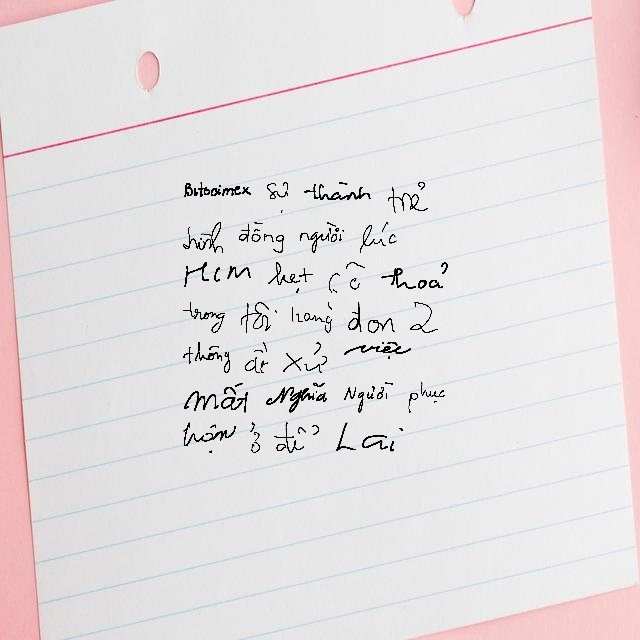 Bitosimex sự thành trẻ
hình đồng người lúc
HCM hẹt có thoả
trong tôi hàng đơn 2
thống để xử việc
mất Nghĩa Người phục
hơn ở để Lai